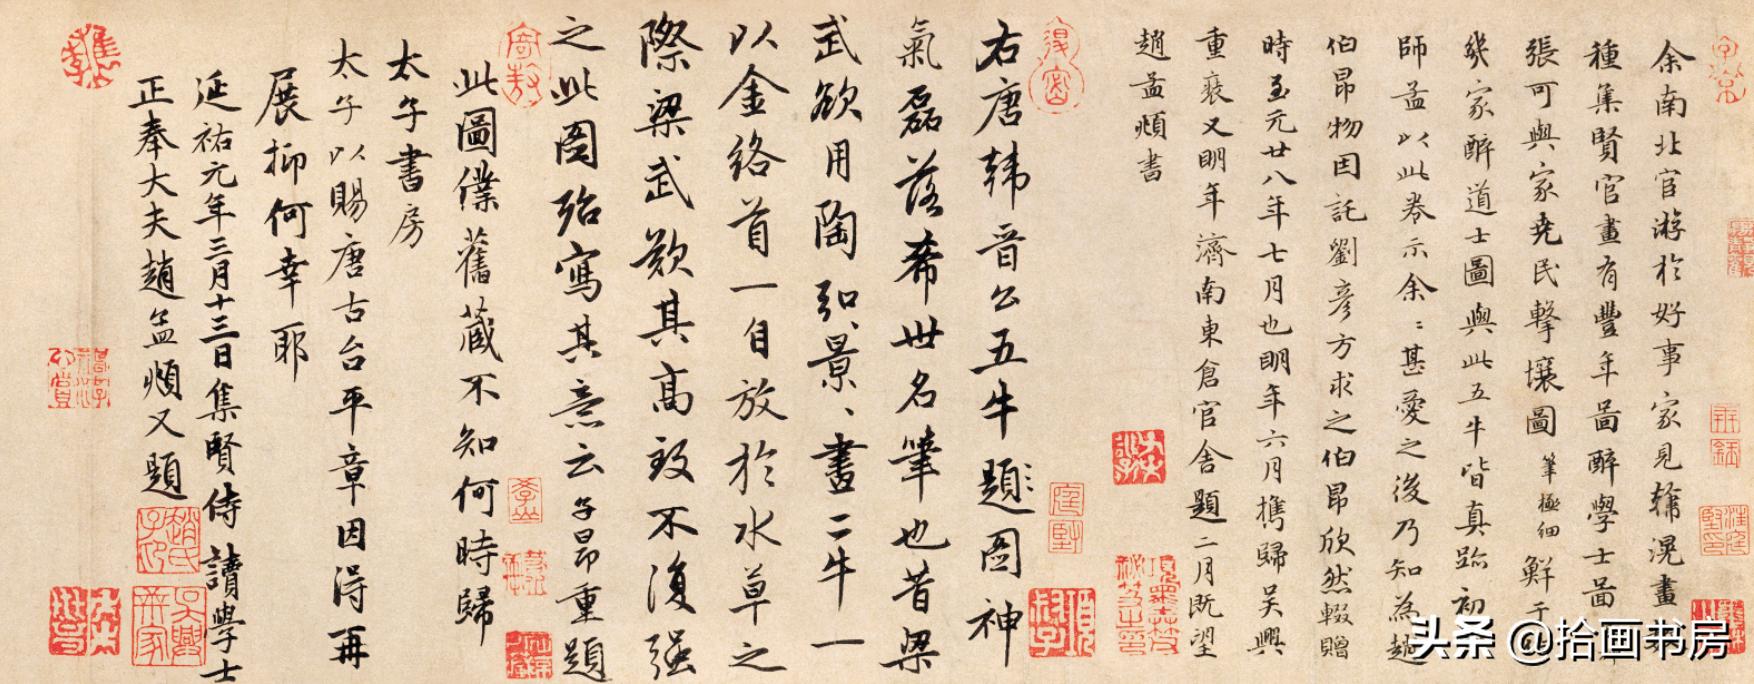 余南北官游於好事家見韓滉畫
種集賢官畫有豐年啚醉學士啚
張可與家堯民擊壤圖筆極細鮮于
幾家醉道士圖與此五牛皆真跡初
師孟以此卷示余〻甚愛之後乃知為趙
伯昂物因託劉彥方求之伯昂欣然輟贈
時至元廿八年七月也明年六月攜歸吳興
重裝又明年濟南東倉官舍題二月既望
趙孟頫書
右唐韓晉公五牛題图神
氣磊落希世名筆也昔梁
武欲用陶弘景、畫二牛一
以金絡首一自放於水草之
際梁武歎其高致不復強
之此图殆寫其意云子昂重題
此圖僕舊藏不知何時歸
太子書房
太子以賜唐古台平章因得再
展抑何幸耶
延祐元年三月十三日集賢侍讀學士
正奉大夫趙孟頫又題
头条 @拾画书房